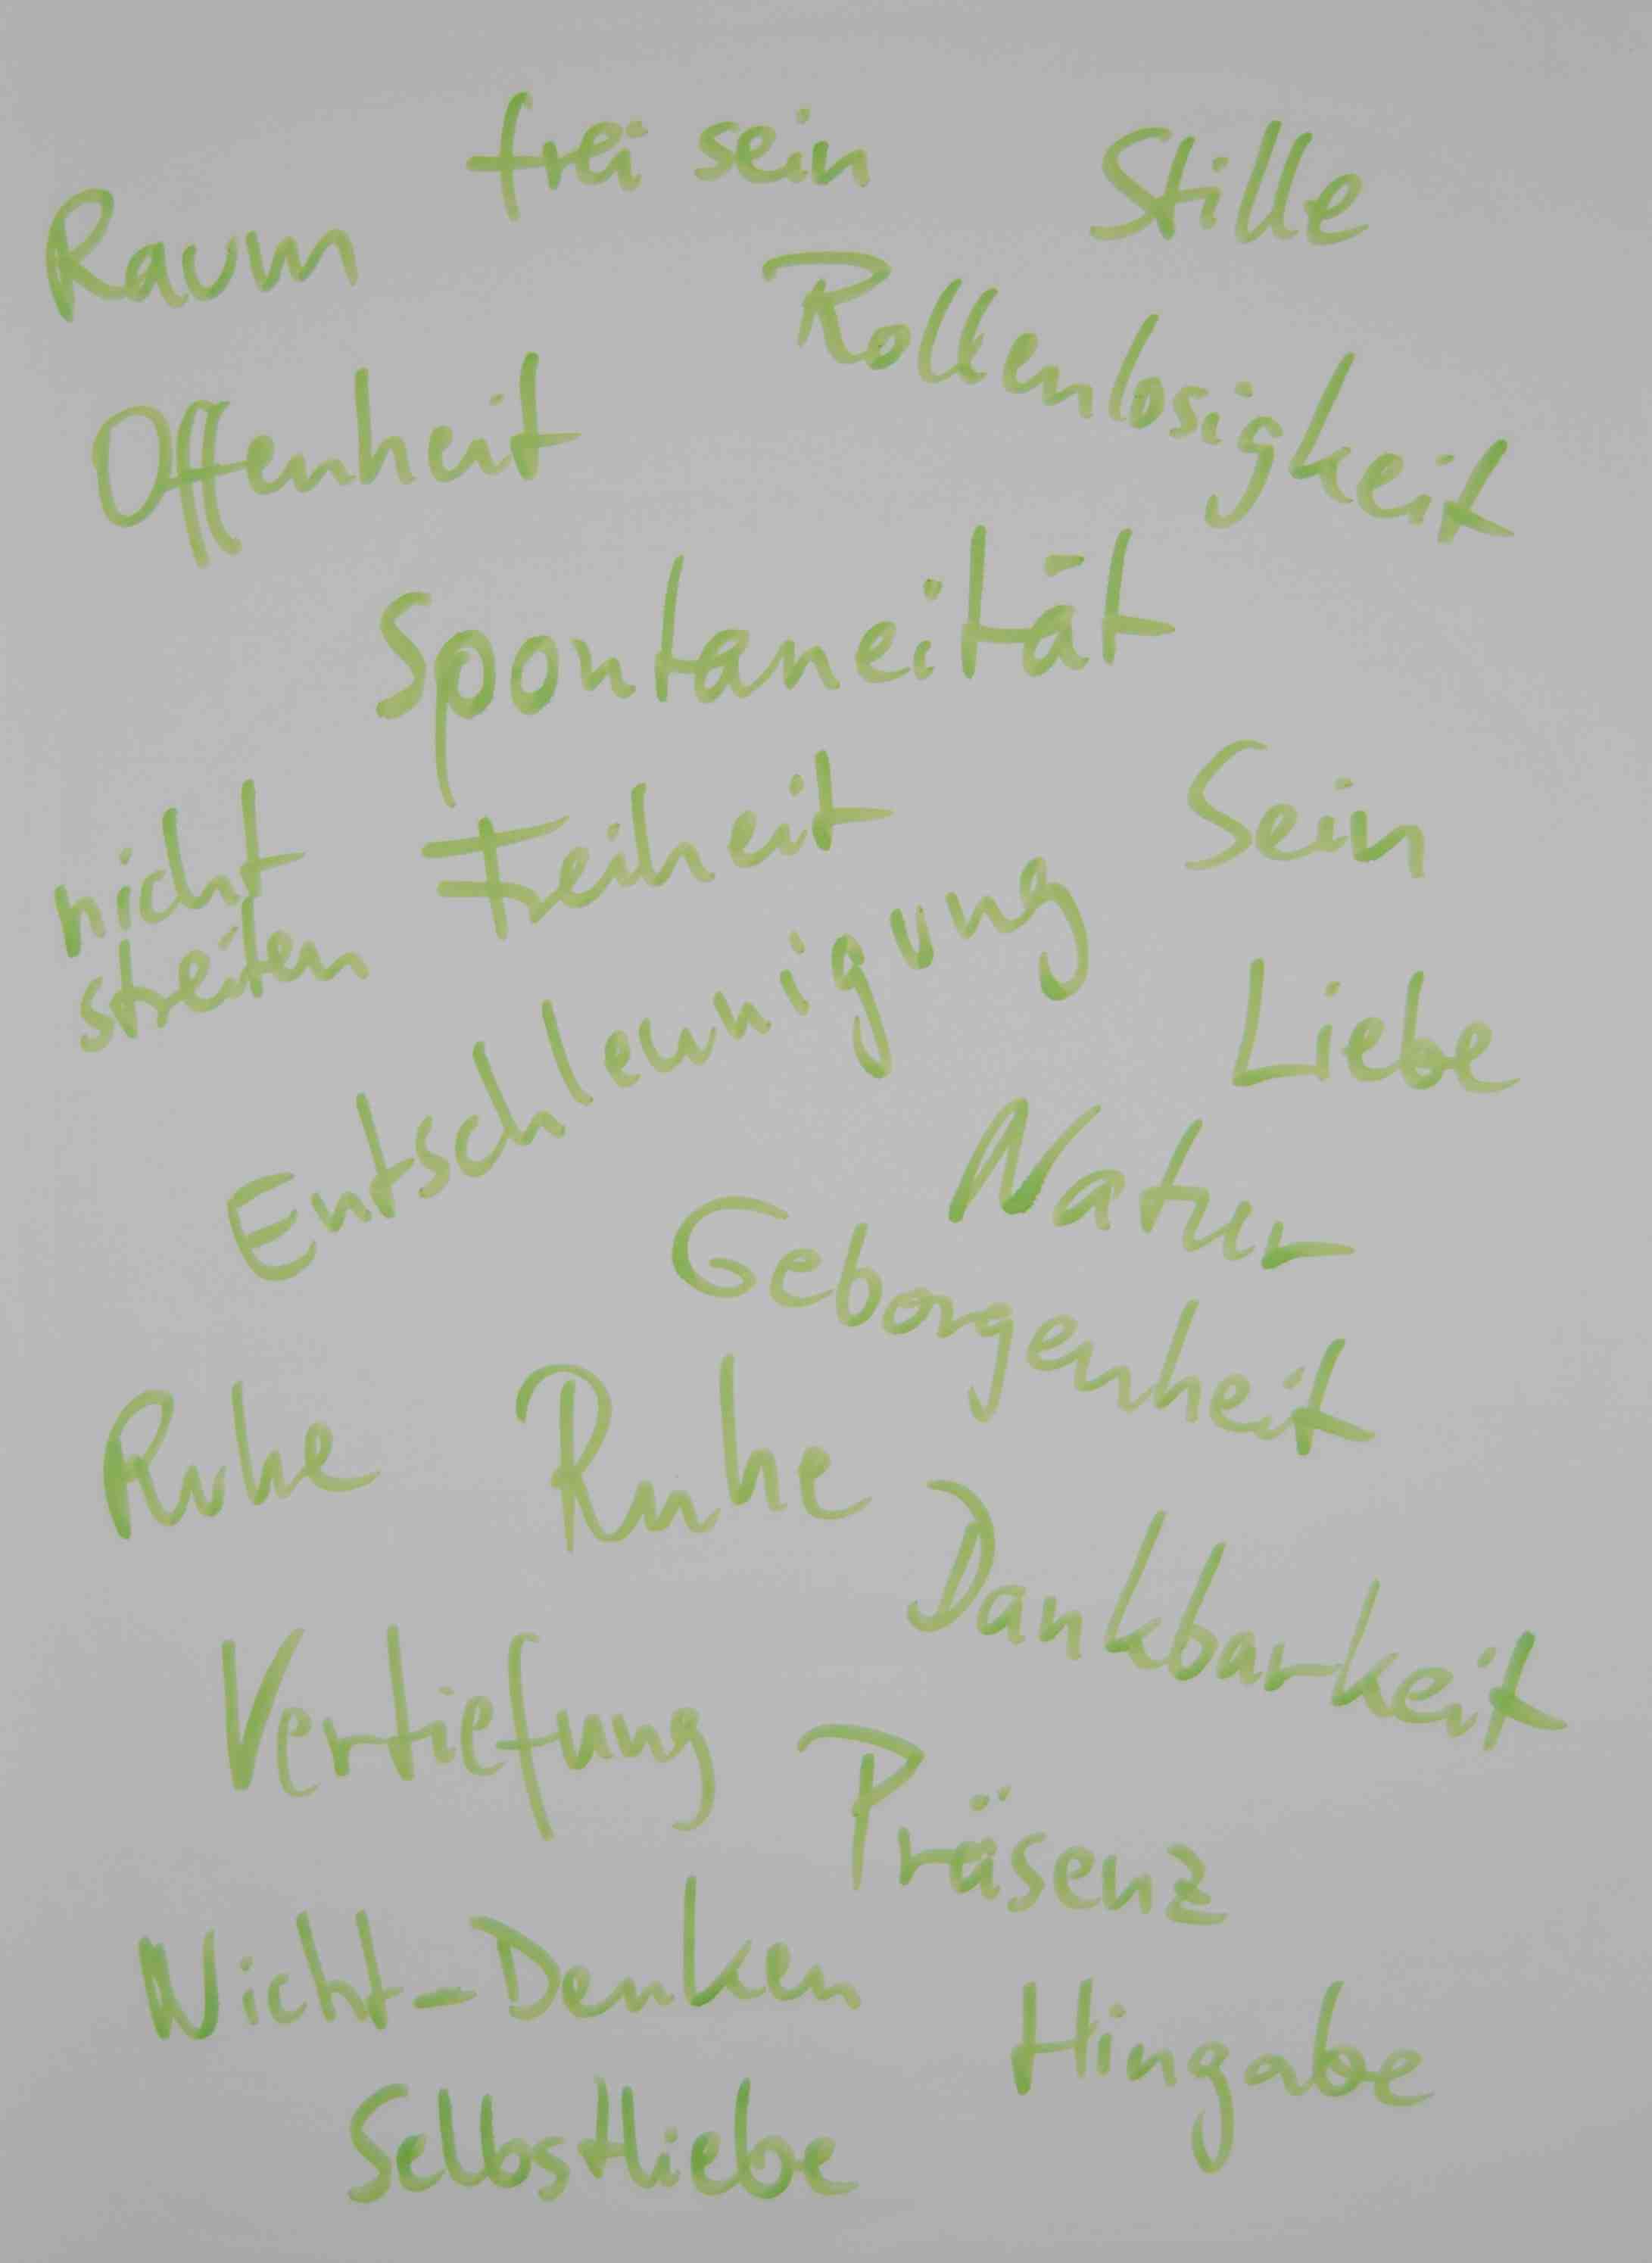 frei sein
Stille
Raum
Rollenlosigkeit
Offenheit
Spontaneität
Sein
nicht
streiten
Freiheit
Entschleunigung
Liebe
Natur
Geborgenheit
Ruhe
Ruhe
Dankbarkeit
Vertiefung
Präsenz
Nicht-Denken
Hingabe
Selbstliebe